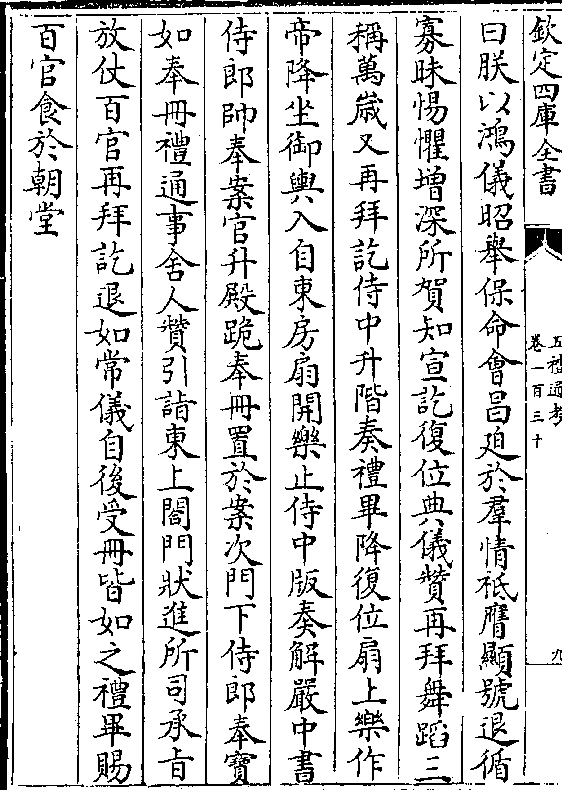 欽定四庫全書
五禮通考
卷一百三十
九
曰朕以鴻儀昭舉保命會昌廹於羣情祗膺顯號退循
寡昧惕懼增深所賀知宣訖復位典儀贊再拜舞蹈三
稱萬嵗又再拜訖侍中升階奏禮畢降復位扇上樂作
帝降坐御輿入自東房扇開樂止侍中版奏解嚴中書
侍郎帥奉案官升殿跪奉冊置於案次門下侍郎奉寶
如奉冊禮通事舍人贊引詣東上閤門狀進所司承㫖
放仗百官再拜訖退如常儀自後受冊皆如之禮畢賜
百官食於朝堂